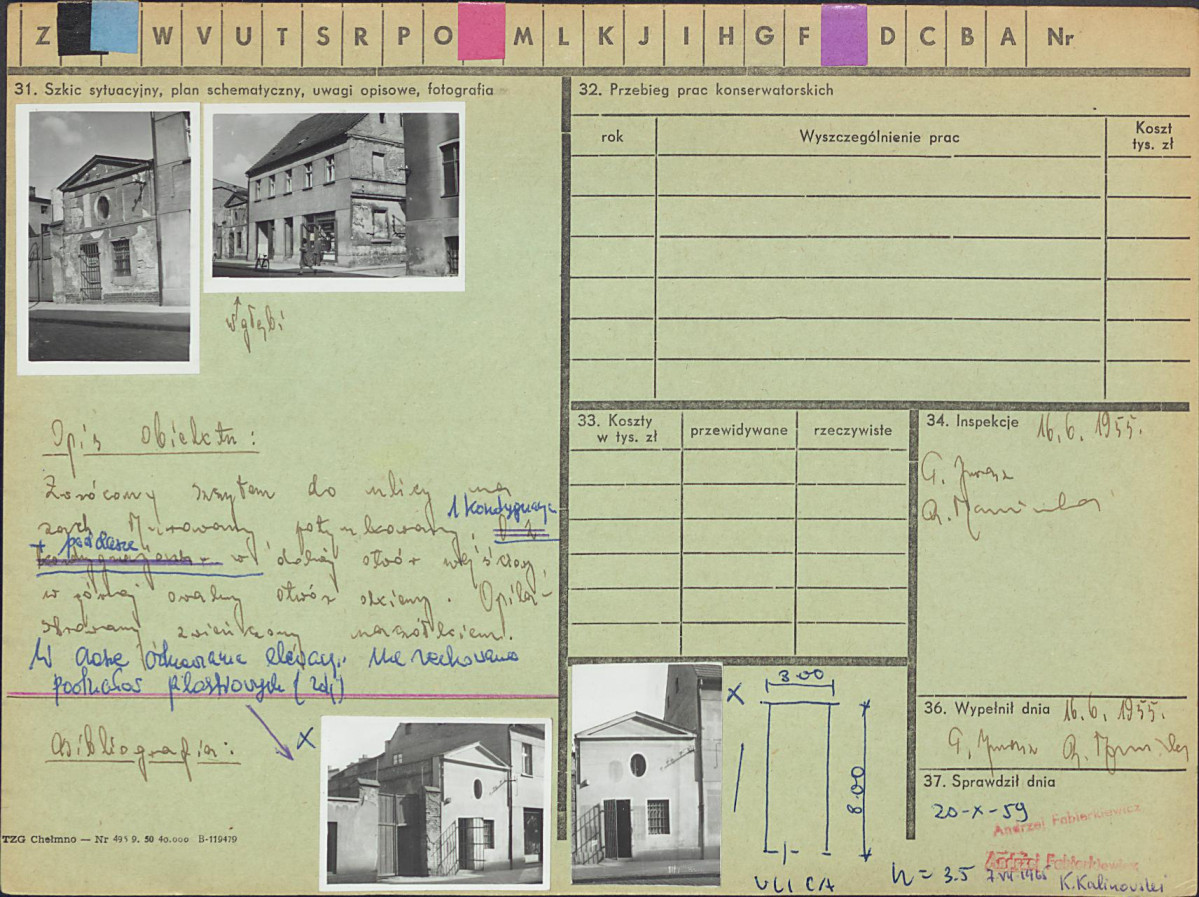 Z W V U T S R P O M L K J I H G F D C B A Nr
31. Szkic sytuacyjny, plan schematyczny, uwagi opisowe, fotografia
w głębi
Opis obiektu:
Zwrócony szczytem do ulicy na
Murowany, potynkowany, 1 kondygnacja
+ poddasze w dolnej otwór wejściowy
w górnej owalny otwór okienny. Opila-
strowany zwieńczony naczółkiem.
W czasie odnawiania elewacji nie zachowano
podziałów pilastrowych (zdj)
Bibliografia:
TZG Chełmno — Nr 495 9. 50 40.000 B-119479
32. Przebieg prac konserwatorskich
rok Wyszczególnienie prac Koszt
tys. zł
33. Koszty
w tys. zł przewidywane rzeczywiste
34. Inspekcje 16.6.1955.
X
X
3.00
8.00
ULICA
h = 3.5
36. Wypełnił dnia 16.6.1955.
37. Sprawdził dnia
20-X-59
Andrzej Fabierkiewicz
Andrzej Fabierkiewicz
K. Kalinowski